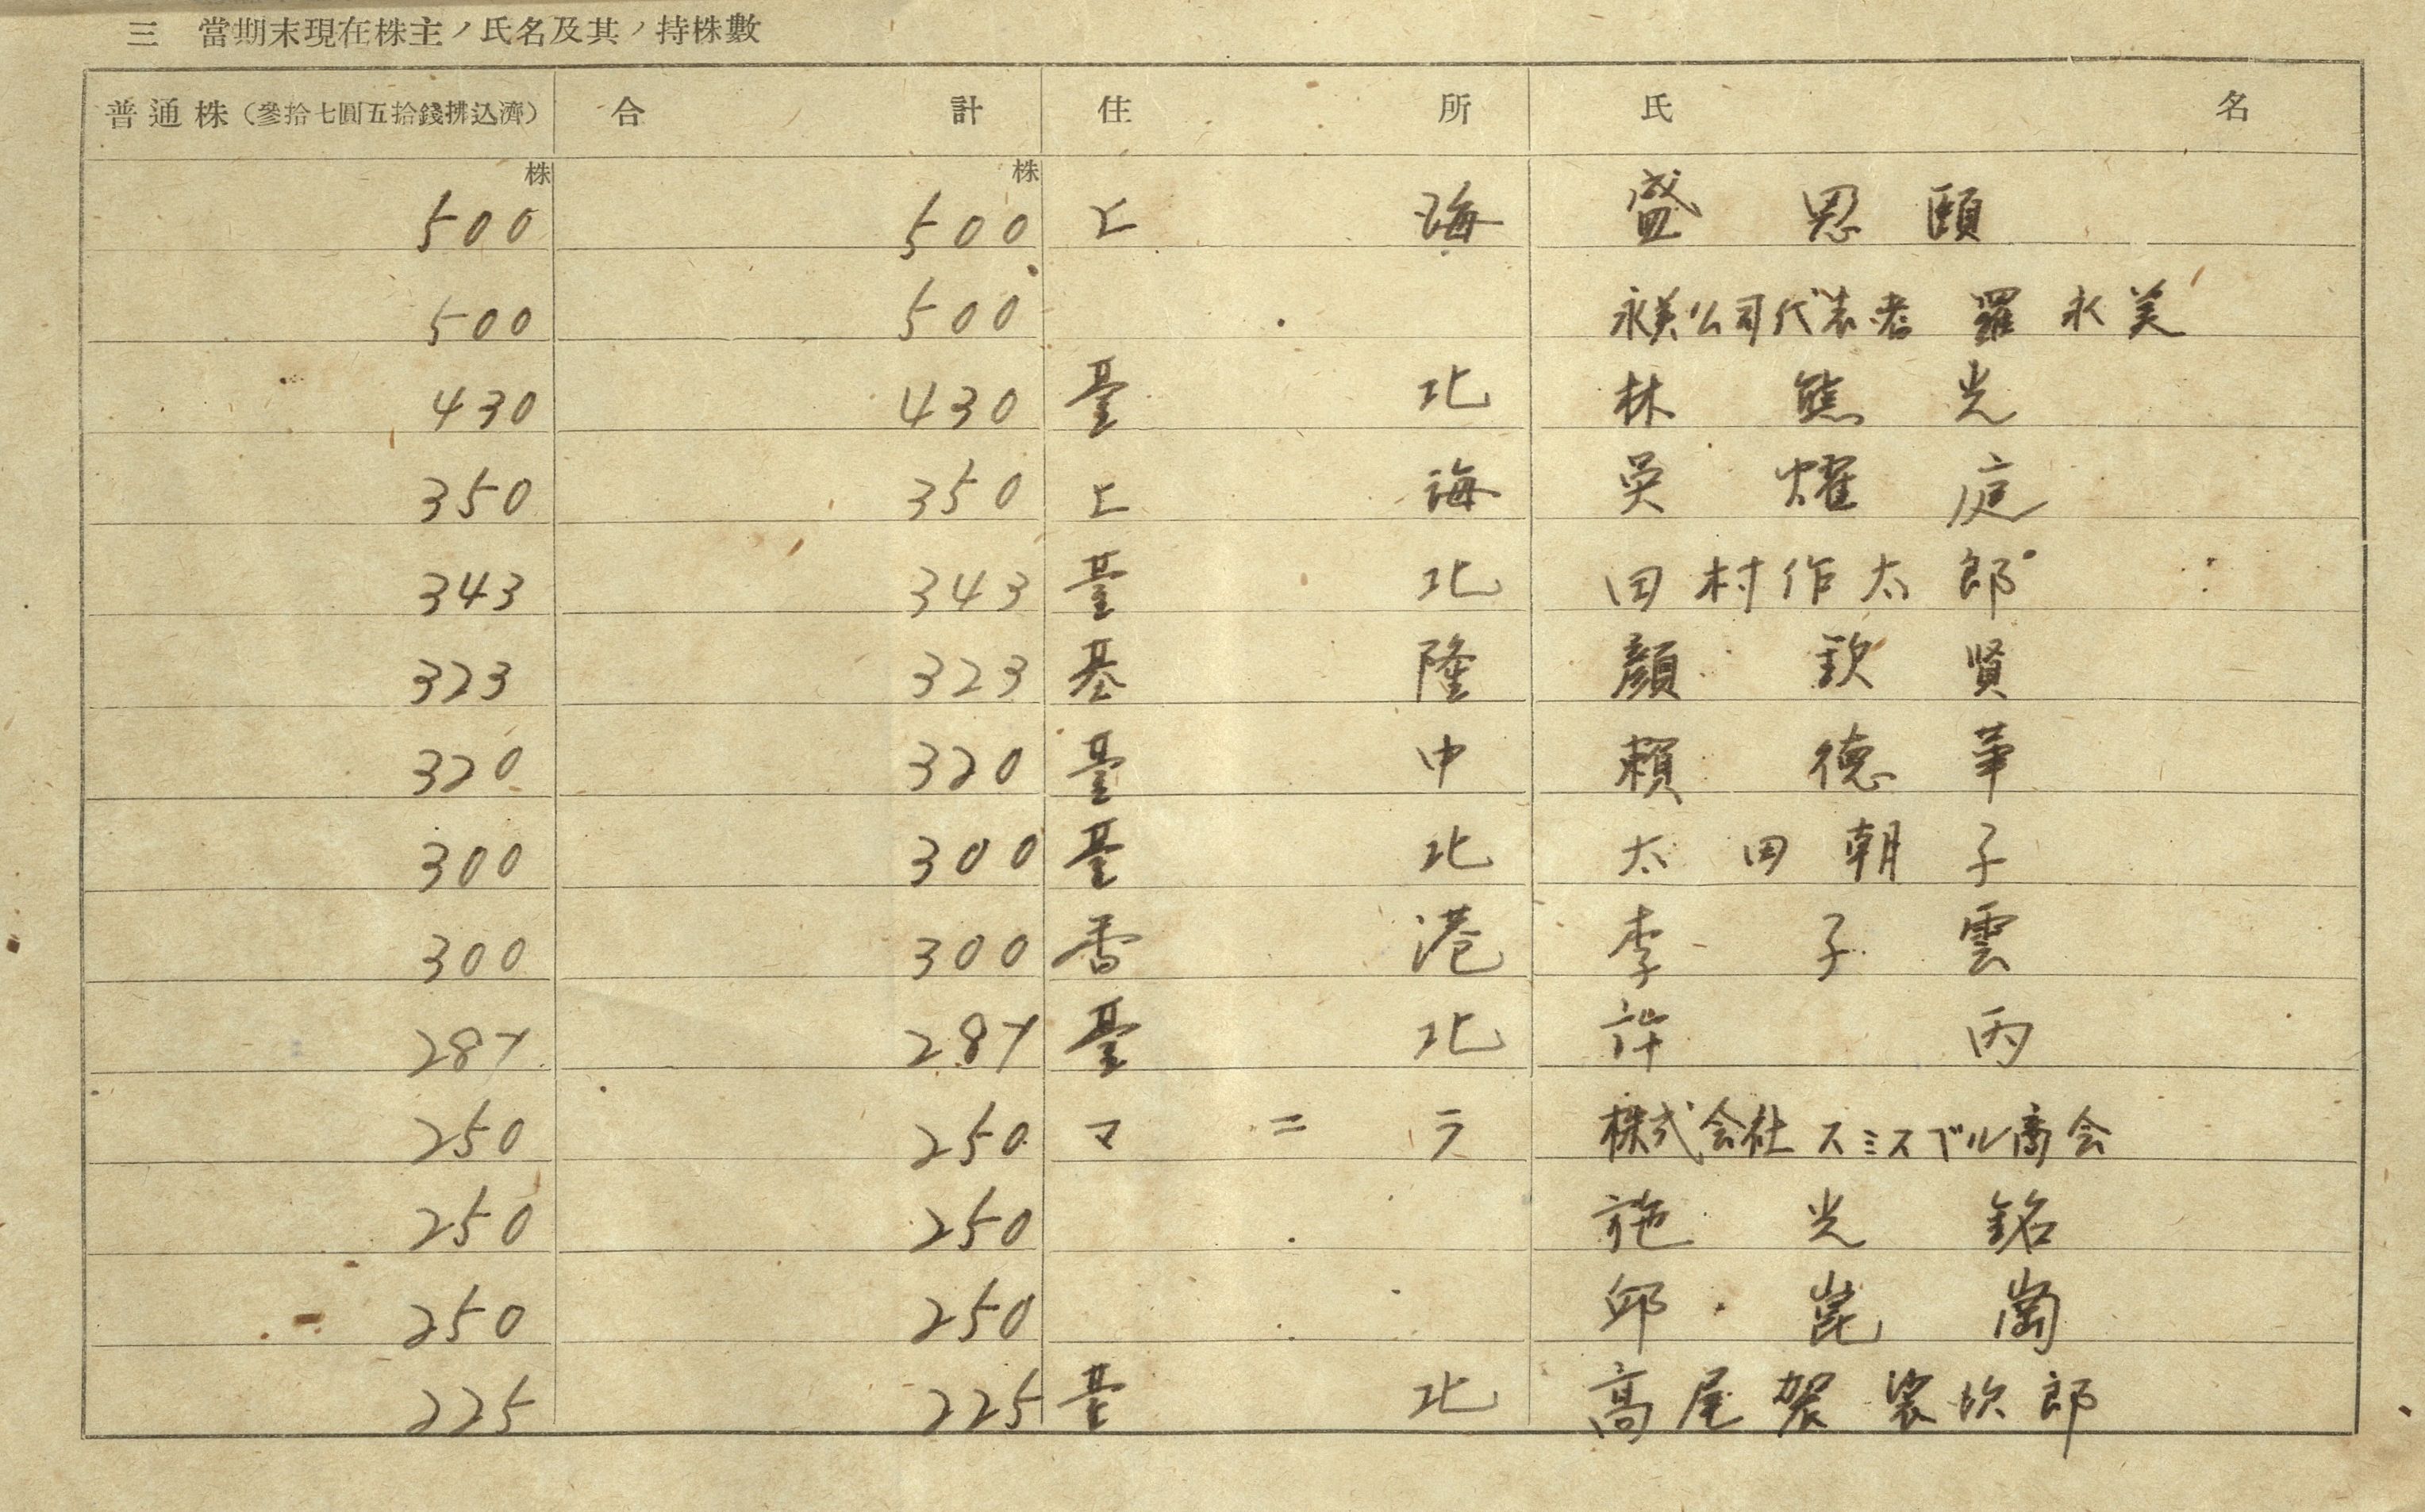 三 當期末現在株主ノ氏名及其ノ持株數
普通株(參拾七圓五拾錢拂込濟) 合計 住所 氏名
株 株
500 500 上海 盛恩頤
500 500 永美公司代表者 羅永美
430 430 臺北 林熊光
350 350 上海 吳燿庭
343 343 臺北 田村作太郎
323 323 基隆 顏欽賢
320 320 臺中 賴德華
300 300 臺北 太田朝子
300 300 香港 李子雲
287 287 臺北 許丙
250 250 マニラ 株式会社スミスベル商会
250 250 施光銘
250 250 邱崑崗
225 225 臺北 高尾袈裟次郎